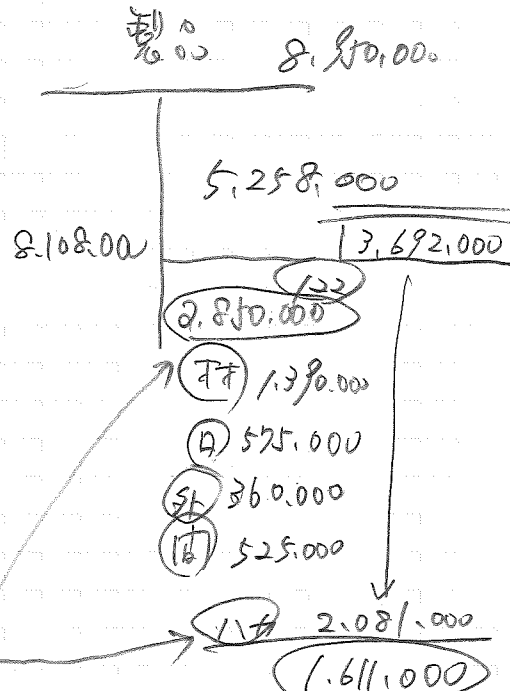 製品 8.950.000
5.258.000
8.108.000
3.692.000
122
2.850.000
材 1.390.000
日 575.000
外 360.000
間 525.000
2.081.000
1.611.000